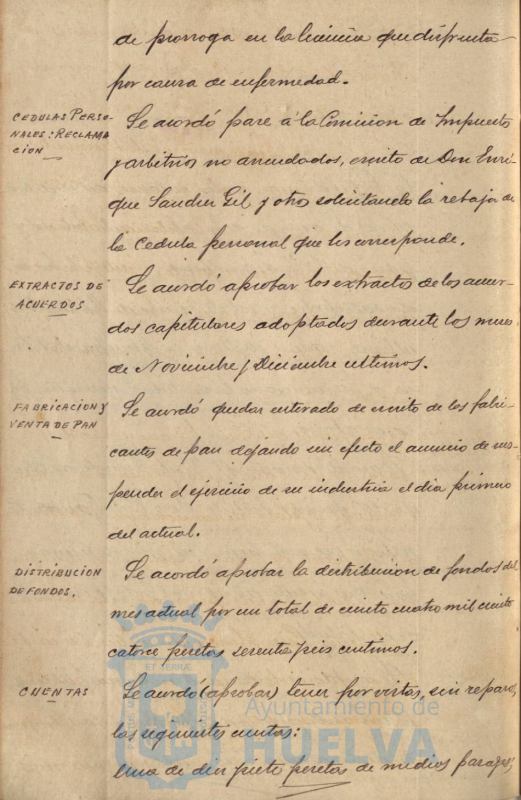 de prorroga en la licencia que disfruta
por causa de enfermedad.
CEDULAS PERSO-
NALES: RECLAMA
CION
Se acordó pase á la Comision de Impuestos
y arbitrios no arrendados, escrito de Don Enri-
que Sanchez Gil y otro solicitando la rebaja de
la Cedula personal que les corresponde.
EXTRACTOS DE
ACUERDOS
Se acordó aprobar los extractos de los acuer-
dos capitulares adoptados durante los meses
de Noviembre y Diciembre ultimos.
FABRICACION Y
VENTA DE PAN
Se acordó quedar enterado de escrito de los fabri-
cantes de pan dejando sin efecto el anuncio de sus-
pender el ejercicio de su industria el dia primero
del actual.
DISTRIBUCION
DE FONDOS.
Se acordó aprobar la distribucion de fondos del
mes actual por un total de ciento cuatro mil ciento
catorce pesetas sesenta seis centimos.
CUENTAS
Se acordó (aprobar) tener por vistas, sin reparos,
las siguientes cuentas:
Una de diez siete pesetas de medios pasajes,
Ayuntamiento de
HUELVA